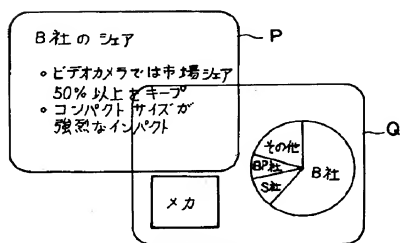 B社のシェア
P
○ ビデオカメラでは市場シェア
50%以上をキープ
○ コンパクトサイズが
強烈なインパクト
Q
その他
BP社
B社
S社
メカ